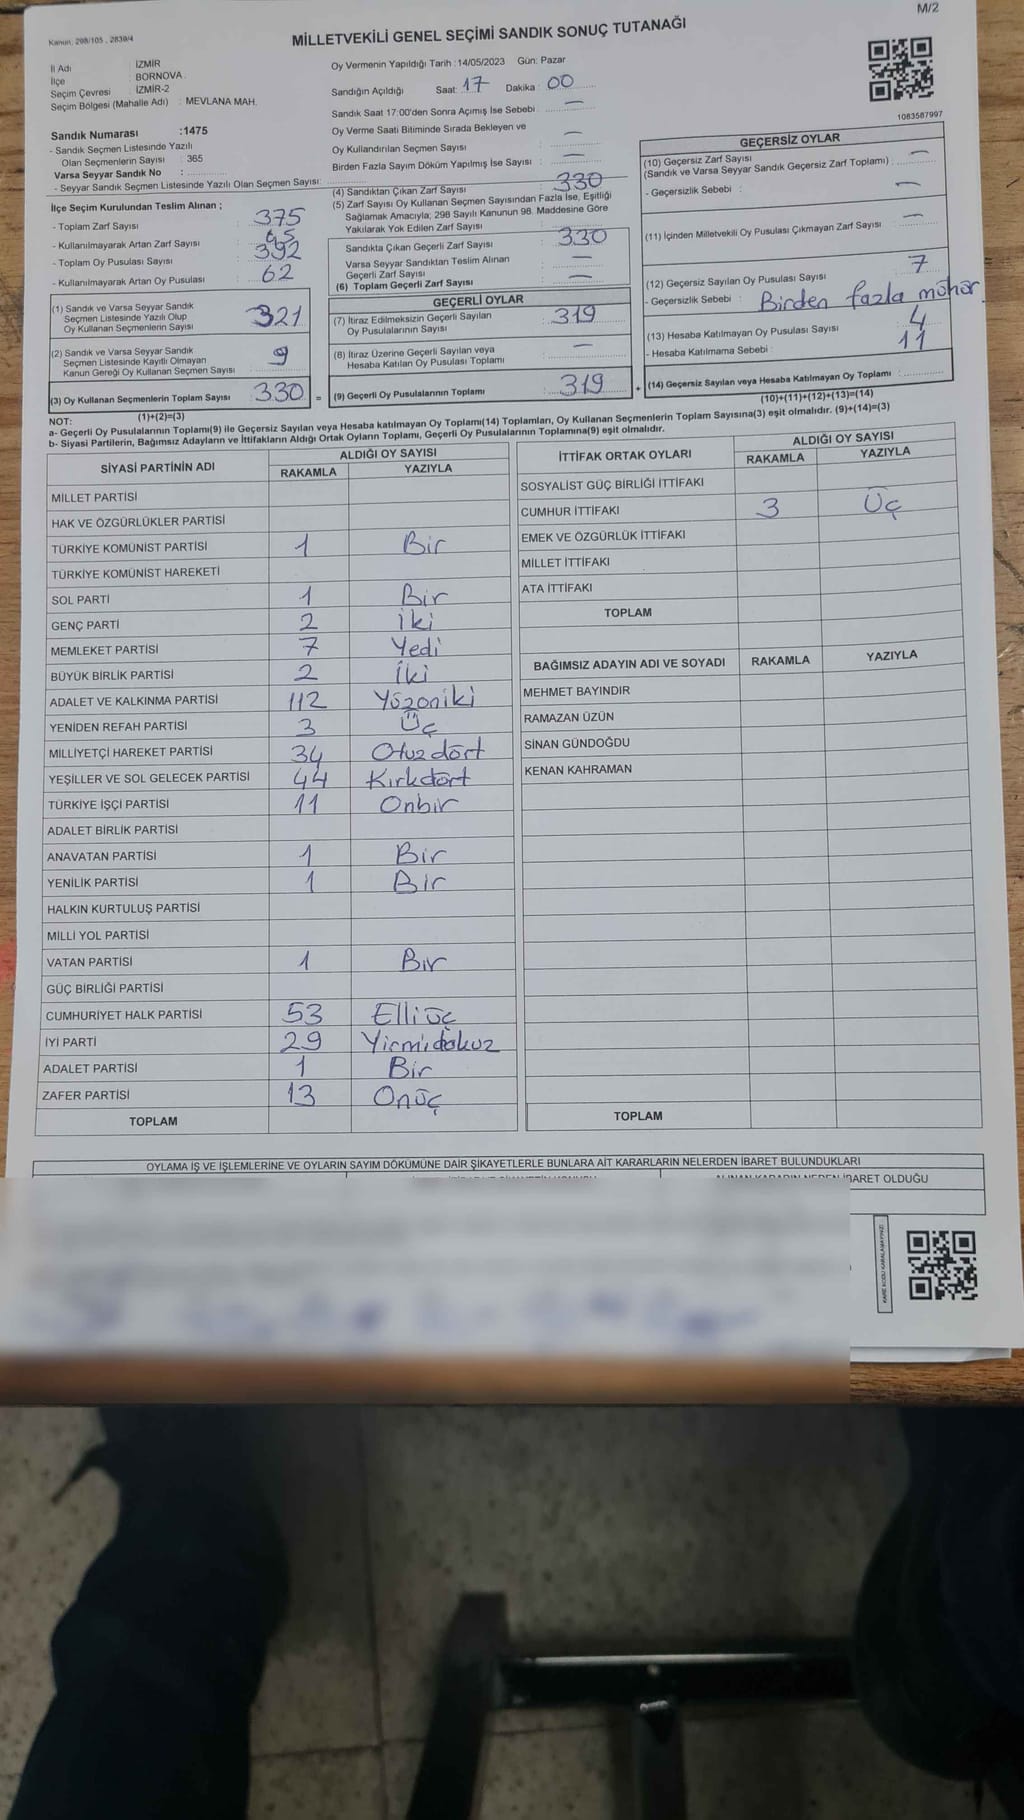 M/2
Kanun, 298/105 , 2839/4
MİLLETVEKİLİ GENEL SEÇİMİ SANDIK SONUÇ TUTANAĞI
İl Adı : İZMİR
İlçe : BORNOVA
Seçim Çevresi : İZMİR-2
Seçim Bölgesi (Mahalle Adı) : MEVLANA MAH.
Sandık Numarası :1475
- Sandık Seçmen Listesinde Yazılı
Olan Seçmenlerin Sayısı : 365
Varsa Seyyar Sandık No :
- Seyyar Sandık Seçmen Listesinde Yazılı Olan Seçmen Sayısı:
İlçe Seçim Kurulundan Teslim Alınan ;
- Toplam Zarf Sayısı : 375
- Kullanılmayarak Artan Zarf Sayısı : 45
- Toplam Oy Pusulası Sayısı : 392
- Kullanılmayarak Artan Oy Pusulası : 62
(1) Sandık ve Varsa Seyyar Sandık
Seçmen Listesinde Yazılı Olup
Oy Kullanan Seçmenlerin Sayısı : 321
(2) Sandık ve Varsa Seyyar Sandık
Seçmen Listesinde Kayıtlı Olmayan
Kanun Gereği Oy Kullanan Seçmen Sayısı : 9
(3) Oy Kullanan Seçmenlerin Toplam Sayısı : 330 =
(1)+(2)=(3)
Oy Vermenin Yapıldığı Tarih :14/05/2023 Gün: Pazar
Sandığın Açıldığı Saat: 17 Dakika : 00
Sandık Saat 17:00'den Sonra Açımış İse Sebebi : —
Oy Verme Saati Bitiminde Sırada Bekleyen ve
Oy Kullandırılan Seçmen Sayısı : —
Birden Fazla Sayım Döküm Yapılmış İse Sayısı : —
(4) Sandıktan Çıkan Zarf Sayısı : 330
(5) Zarf Sayısı Oy Kullanan Seçmen Sayısından Fazla İse, Eşitliği
Sağlamak Amacıyla; 298 Sayılı Kanunun 98. Maddesine Göre
Yakılarak Yok Edilen Zarf Sayısı :
Sandıkta Çıkan Geçerli Zarf Sayısı : 330
Varsa Seyyar Sandıktan Teslim Alınan
Geçerli Zarf Sayısı : —
(6) Toplam Geçerli Zarf Sayısı : —
GEÇERLİ OYLAR
(7) İtiraz Edilmeksizin Geçerli Sayılan
Oy Pusulalarının Sayısı : 319
(8) İtiraz Üzerine Geçerli Sayılan veya
Hesaba Katılan Oy Pusulası Toplamı : —
(9) Geçerli Oy Pusulalarının Toplamı : 319 +
1083587997
GEÇERSİZ OYLAR
(10) Geçersiz Zarf Sayısı
(Sandık ve Varsa Seyyar Sandık Geçersiz Zarf Toplamı) : —
- Geçersizlik Sebebi : —
(11) İçinden Milletvekili Oy Pusulası Çıkmayan Zarf Sayısı : —
(12) Geçersiz Sayılan Oy Pusulası Sayısı : 7
- Geçersizlik Sebebi : Birden fazla mühür
(13) Hesaba Katılmayan Oy Pusulası Sayısı : 4
- Hesaba Katılmama Sebebi : 11
(14) Geçersiz Sayılan veya Hesaba Katılmayan Oy Toplamı :
(10)+(11)+(12)+(13)=(14)
NOT:
a- Geçerli Oy Pusulalarının Toplamı(9) ile Geçersiz Sayılan veya Hesaba katılmayan Oy Toplamı(14) Toplamları, Oy Kullanan Seçmenlerin Toplam Sayısına(3) eşit olmalıdır. (9)+(14)=(3)
b- Siyasi Partilerin, Bağımsız Adayların ve İttifakların Aldığı Ortak Oyların Toplamı, Geçerli Oy Pusulalarının Toplamına(9) eşit olmalıdır.
SİYASİ PARTİNİN ADI ALDIĞI OY SAYISI
RAKAMLA YAZIYLA
MİLLET PARTİSİ
HAK VE ÖZGÜRLÜKLER PARTİSİ
TÜRKİYE KOMÜNİST PARTİSİ 1 Bir
TÜRKİYE KOMÜNİST HAREKETİ
SOL PARTİ 1 Bir
GENÇ PARTİ 2 İki
MEMLEKET PARTİSİ 7 Yedi
BÜYÜK BİRLİK PARTİSİ 2 İki
ADALET VE KALKINMA PARTİSİ 112 Yüzoniki
YENİDEN REFAH PARTİSİ 3 Üç
MİLLİYETÇİ HAREKET PARTİSİ 34 Otuzdört
YEŞİLLER VE SOL GELECEK PARTİSİ 44 Kırkdört
TÜRKİYE İŞÇİ PARTİSİ 11 Onbir
ADALET BİRLİK PARTİSİ
ANAVATAN PARTİSİ 1 Bir
YENİLİK PARTİSİ 1 Bir
HALKIN KURTULUŞ PARTİSİ
MİLLİ YOL PARTİSİ
VATAN PARTİSİ 1 Bir
GÜÇ BİRLİĞİ PARTİSİ
CUMHURİYET HALK PARTİSİ 53 Elliüç
İYİ PARTİ 29 Yirmidokuz
ADALET PARTİSİ 1 Bir
ZAFER PARTİSİ 13 Onüç
TOPLAM
İTTİFAK ORTAK OYLARI ALDIĞI OY SAYISI
RAKAMLA YAZIYLA
SOSYALİST GÜÇ BİRLİĞİ İTTİFAKI
CUMHUR İTTİFAKI 3 Üç
EMEK VE ÖZGÜRLÜK İTTİFAKI
MİLLET İTTİFAKI
ATA İTTİFAKI
TOPLAM
BAĞIMSIZ ADAYIN ADI VE SOYADI RAKAMLA YAZIYLA
MEHMET BAYINDIR
RAMAZAN ÜZÜN
SİNAN GÜNDOĞDU
KENAN KAHRAMAN
TOPLAM
OYLAMA İŞ VE İŞLEMLERİNE VE OYLARIN SAYIM DÖKÜMÜNE DAİR ŞİKAYETLERLE BUNLARA AİT KARARLARIN NELERDEN İBARET BULUNDUKLARI
ALINAN KARARIN NEDEN İBARET OLDUĞU
KARE KODU KARALAMAYINIZ!